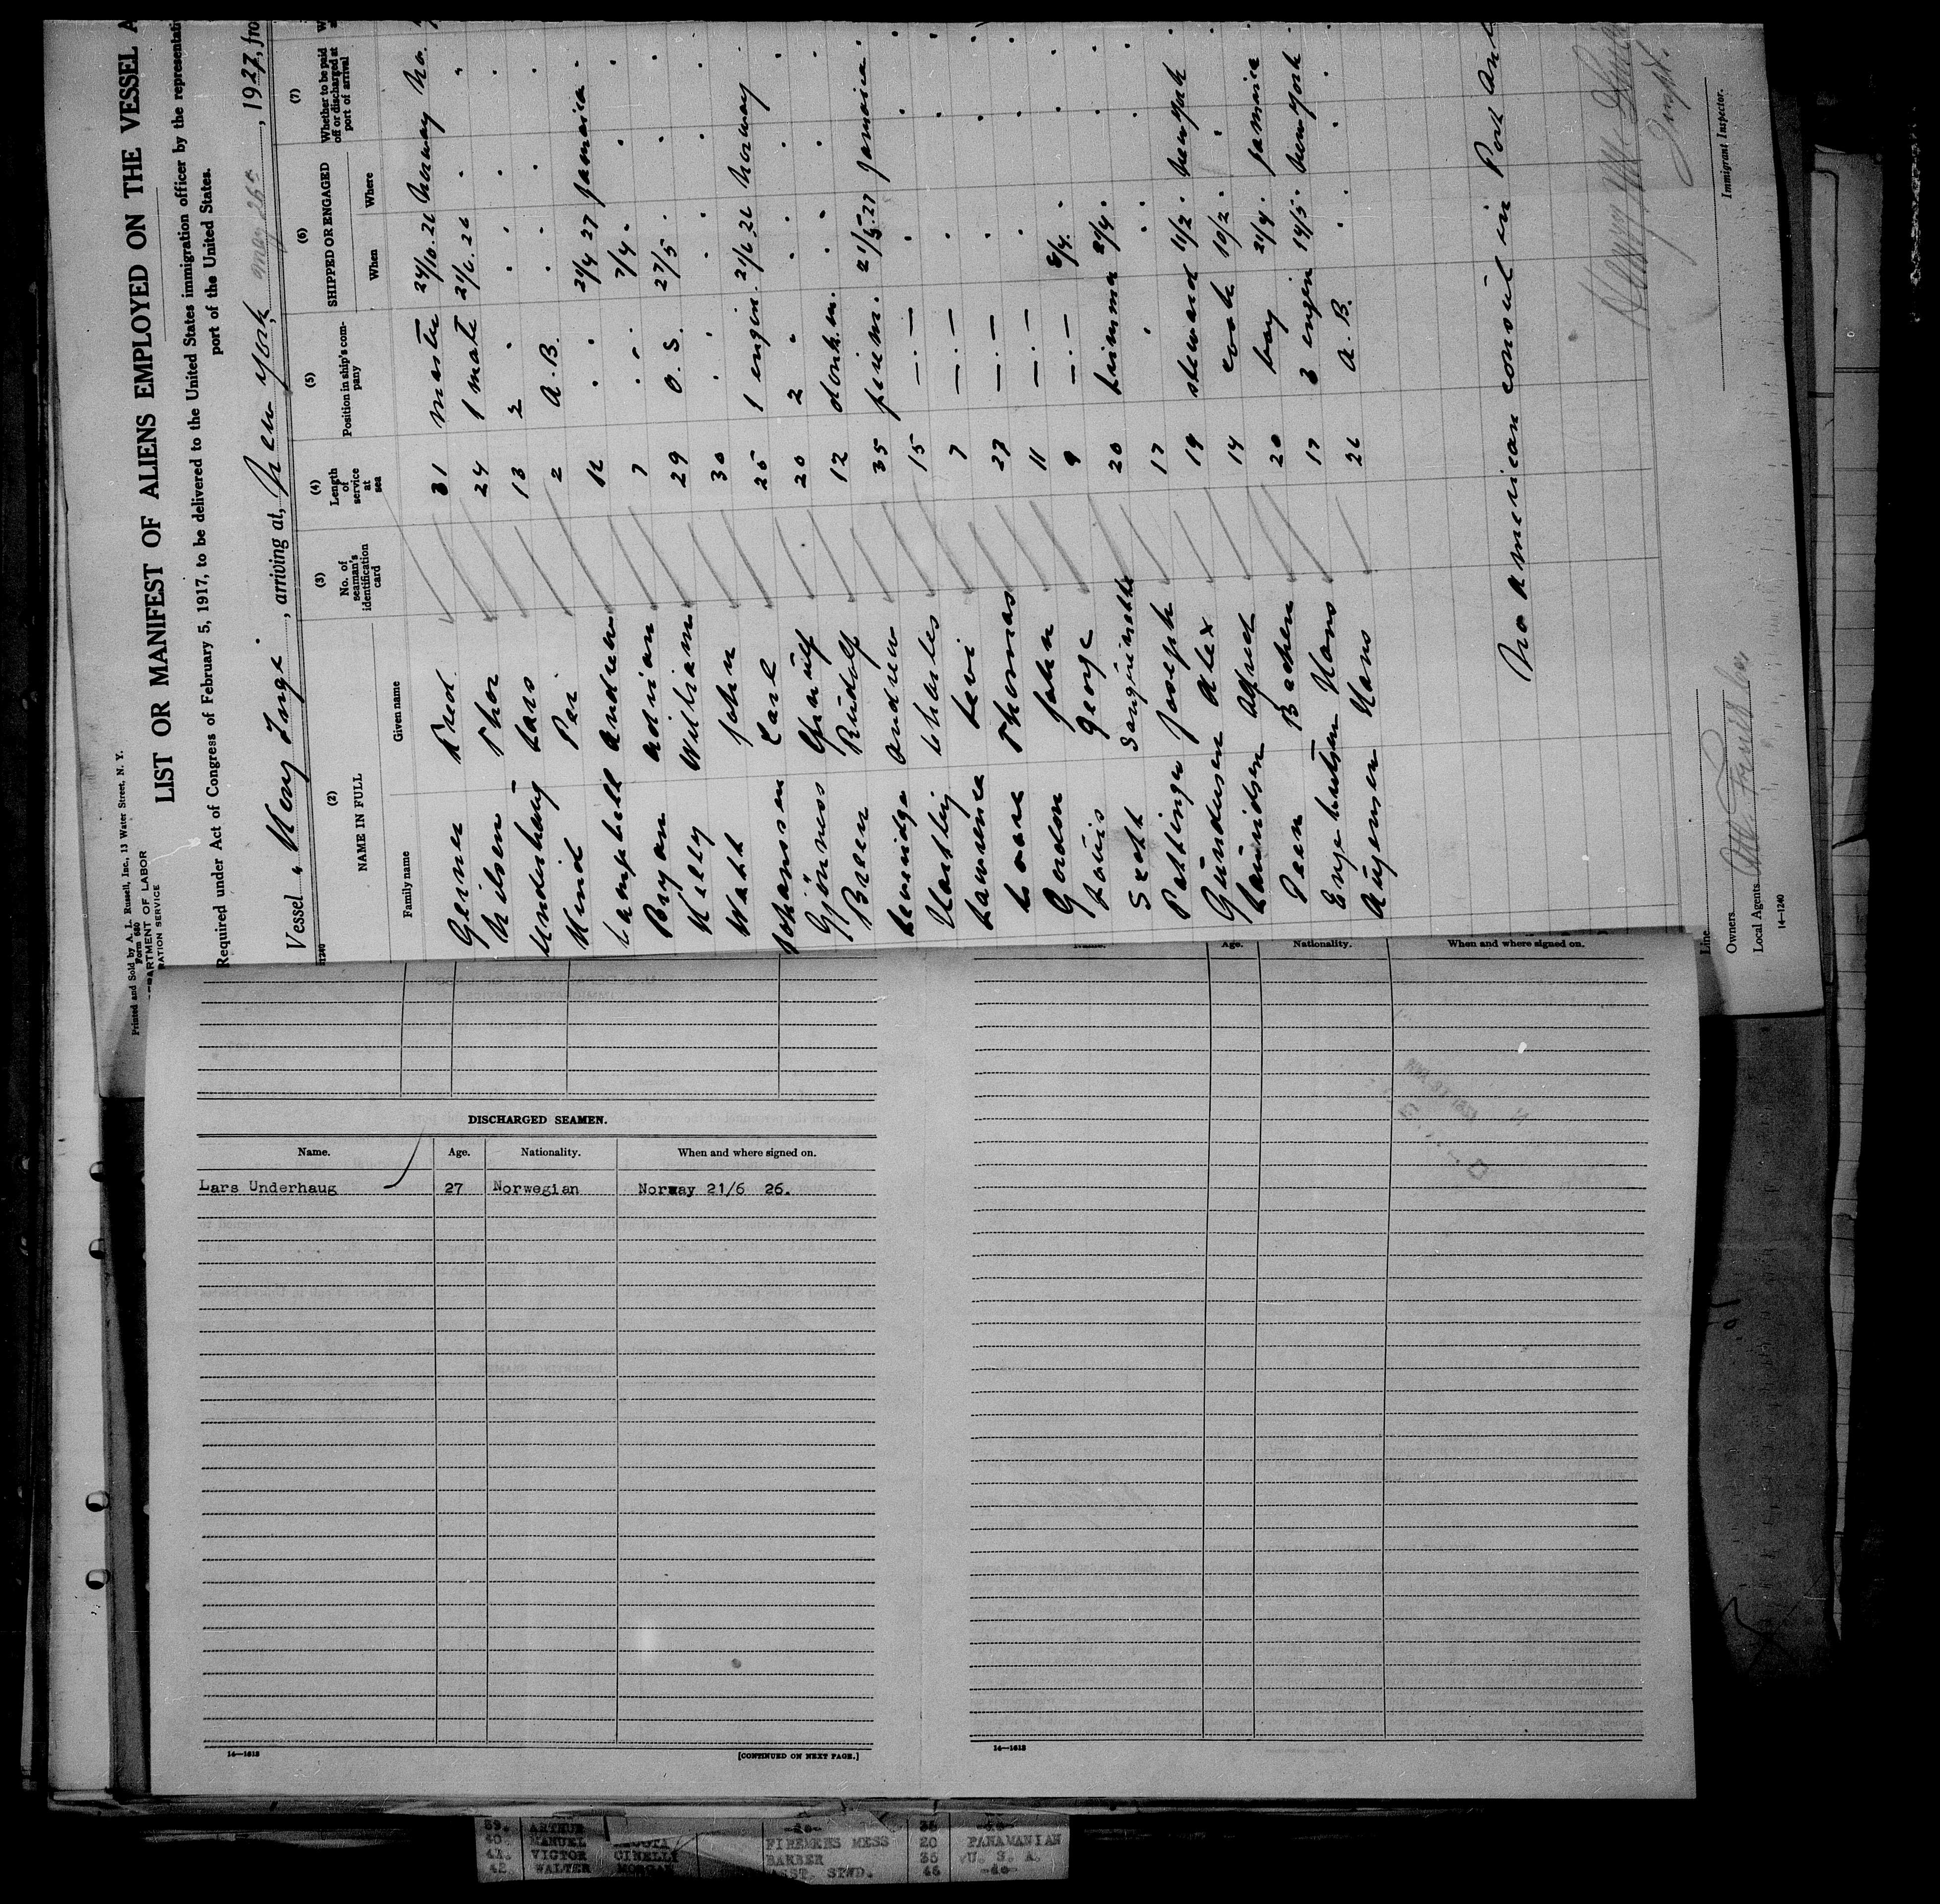 Printed and Sold by A. L. Russell, Inc., 13 Water Street, N. Y.
Form 680
DEPARTMENT OF LABOR
LIST OR MANIFEST OF ALIENS EMPLOYED ON THE VESSEL A
Required under Act of Congress of February 5, 1917, to be delivered to the United States immigration officer by the representati
port of the United States.
Vessel "Kong Inge", arriving at, New York, May 26th, 1927, fro
(2) NAME IN FULL
Family name Given name
(3) No. of seaman's identification card
(4) Length of service at sea
(5) Position in ship's company
(6) SHIPPED OR ENGAGED
When Where
(7) Whether to be paid off or discharged at port of arrival
Geiner Fred. 31 master 24/10.26 Norway No.
Nilsen Thor 24 1 mate 21/6.26 "
Underhaug Lars 13 2 "
Hind Per 2 A.B.
Campbell Andrew 12 " 21/4 27 Jamaica
Bryan Adrian 7 " 7/4
Kelly William 29 O.S. 27/5
Watt John 30 "
Johanssen Carl 25 1 engin. 21/6.26 Norway
Gjönness 20 2 "
Breen Rudolf 12 donk.m.
Leveridge Andrew 35 firem. 21/5.27 Jamaica
Hartley Charles 15 —.—
Lawrence Levi 7 —.—
Loane Thomas 27 —.—
Gordon John 11 —.—
Louis George 9 —.— 8/4
Scott Sanquinette 20 trimmer 29/4
Pottinger Joseph 17 "
Gundersen Alex 19 steward 11/2 New York
Lauridsen Alfred 14 cook 10/2 "
Penn Becher 20 boy 21/4 Jamaica
Engebretsen Hans 17 3 engin 14/5 New York
Augensen Hans 26 A.B. "
No American consul in Port Ant
Immigrant Inspector.
Line
Owners
Local Agents
14—1240
Name. Age. Nationality. When and where signed on.
DISCHARGED SEAMEN.
Name. Age. Nationality. When and where signed on.
Lars Underhaug 27 Norwegian Norway 21/6 26.
14—1613
[CONTINUED ON NEXT PAGE.]
14—1613
39. ARTHUR -do- 38 -do-
40. MANUEL FIREMENS MESS 20 PANAMANIAN
41. VICTOR CINELLI BARBER 35 U. S. A.
42. WALTER MORGAN STWD. 46 -do-